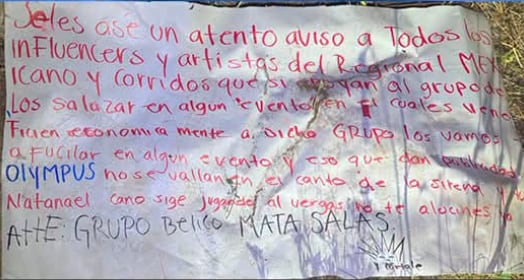 Seles ase un atento aviso a Todos los
inFluencers y artistas del Regional MEX
icano y corridos que si apoyan al grupo de
Los salazar en algun evento en el cuales vene
Ficien economica mente a dicho GRUPO los vamos
a Fucilar en algun evento y eso que dan publicidad
OlYMPUS no se vallan en el canto de la sirena y
Natanael cano sige jugando al vergas no te alucines
AttE: GRUPO Belico MATA SALAS.